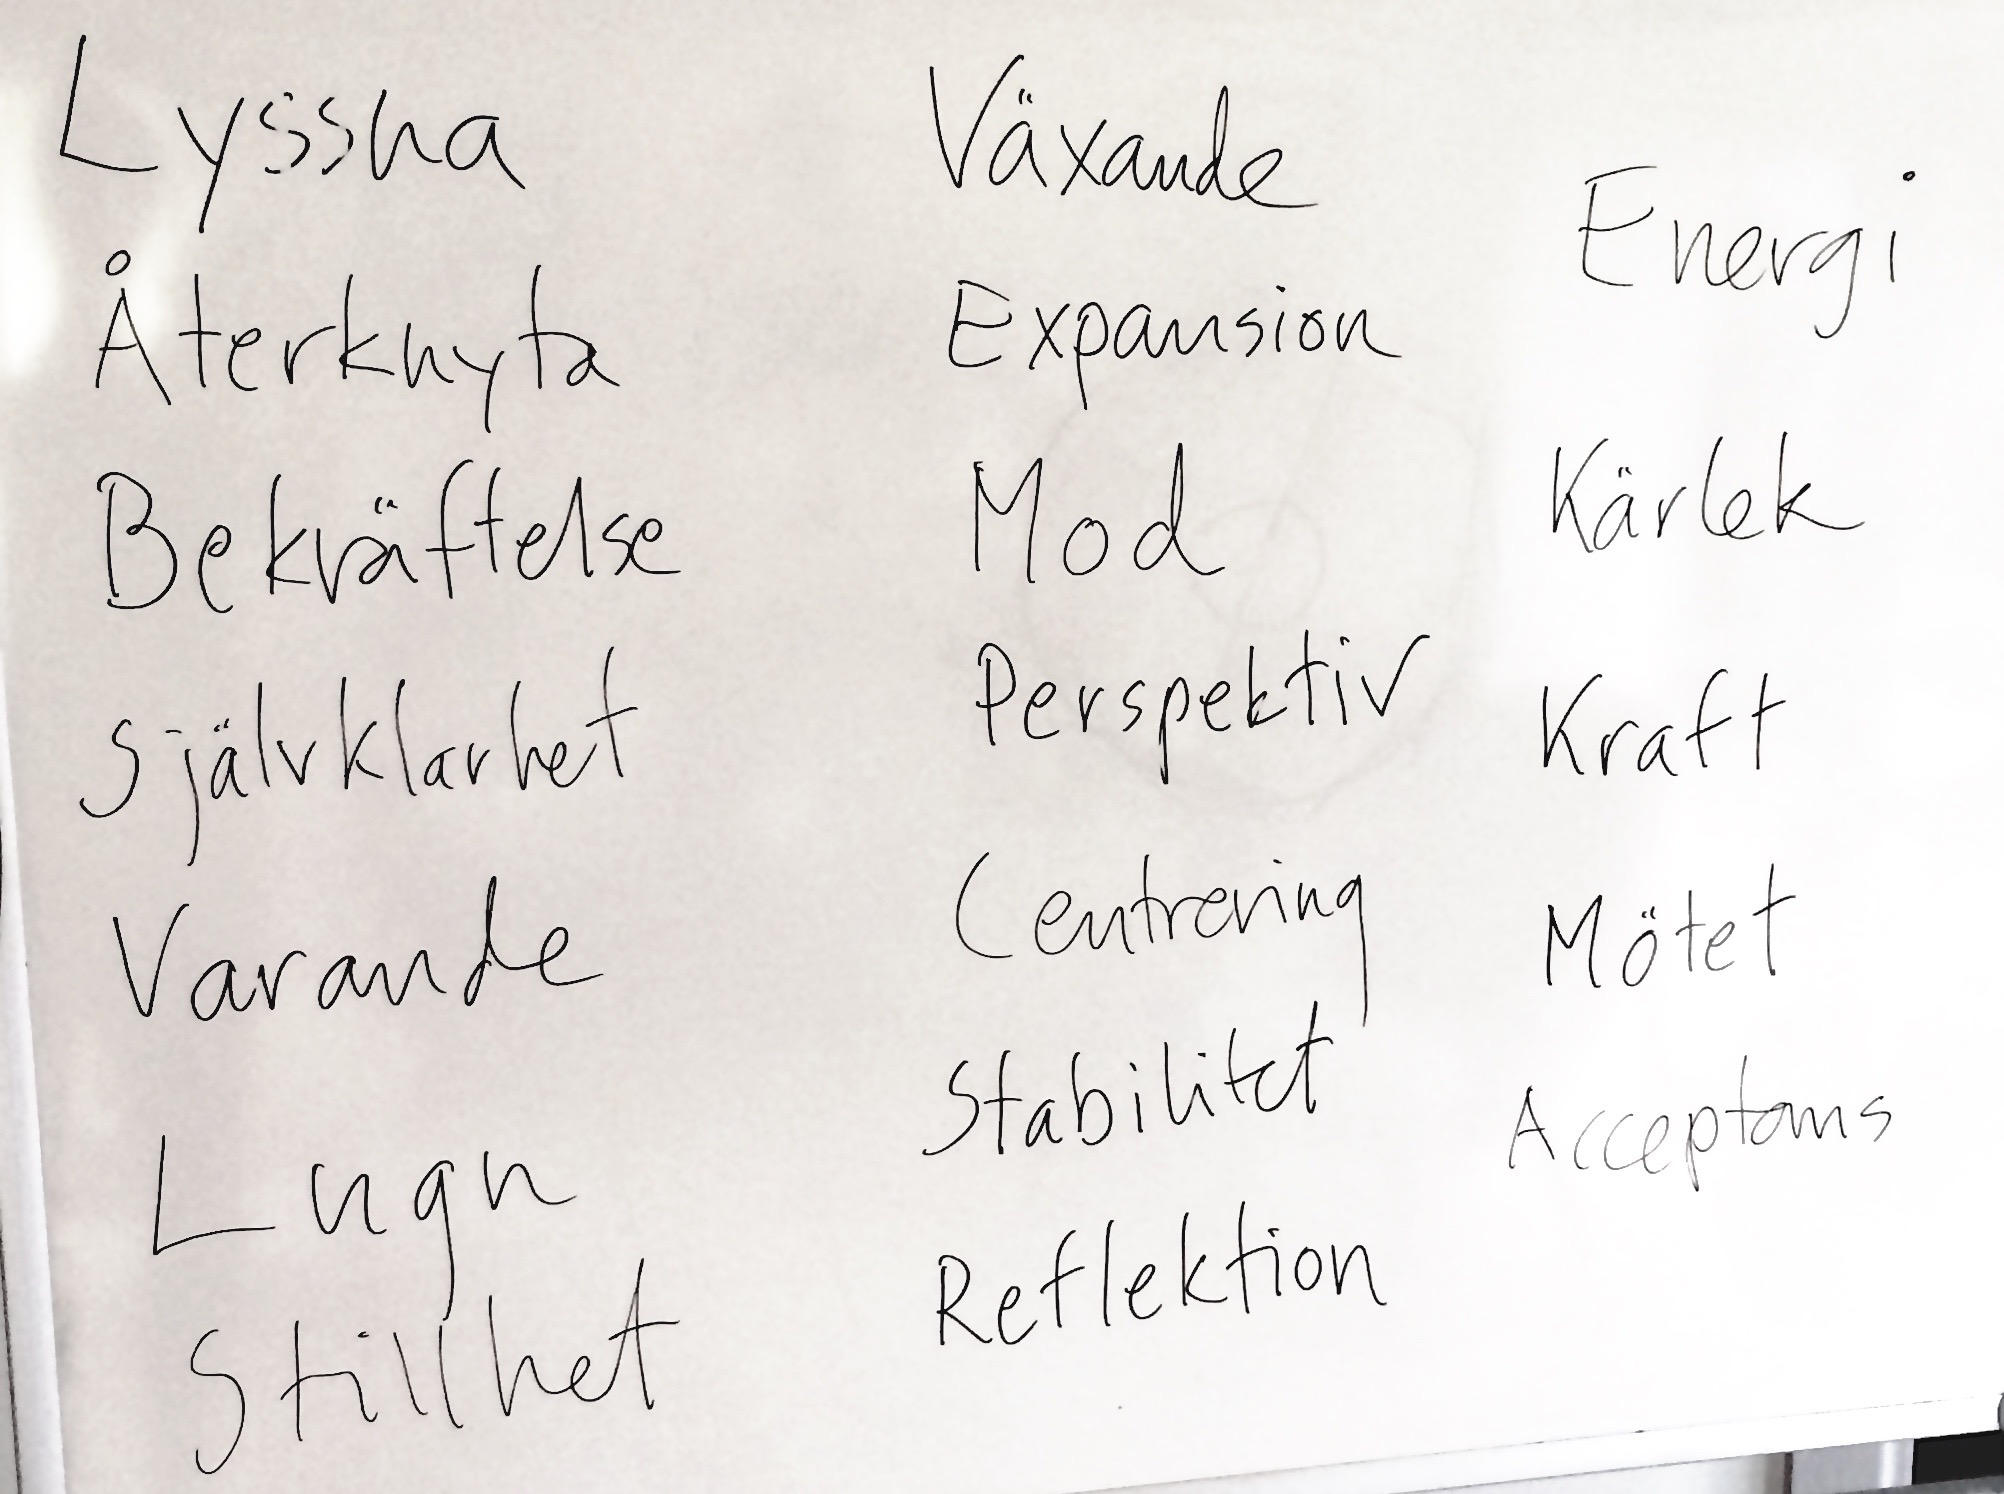 Lyssna
Återknyta
Bekräftelse
Självklarhet
Varande
Lugn
Stillhet
Växande
Expansion
Mod
Perspektiv
Centrering
Stabilitet
Reflektion
Energi
Kärlek
Kraft
Mötet
Acceptans